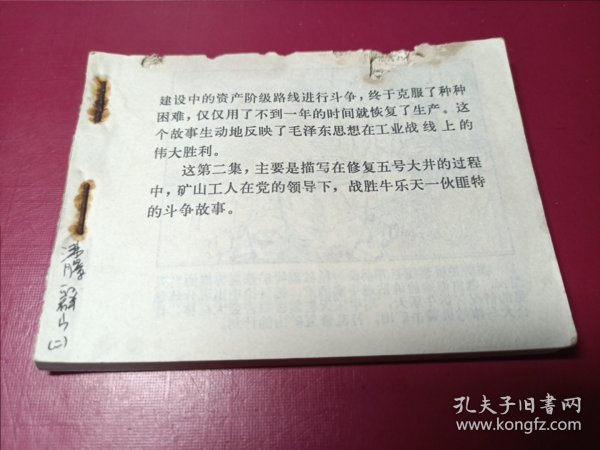 建设中的资产阶级路线进行斗争，终于克服了种种
困难，仅仅用了不到一年的时间就恢复了生产。这
个故事生动地反映了毛泽东思想在工业战线上的
伟大胜利。
这第二集，主要是描写在修复五号大井的过程
中，矿山工人在党的领导下，战胜牛乐天一伙匪特
的斗争故事。
沸腾群山
(二)
孔夫子旧书网
www.kongfz.com